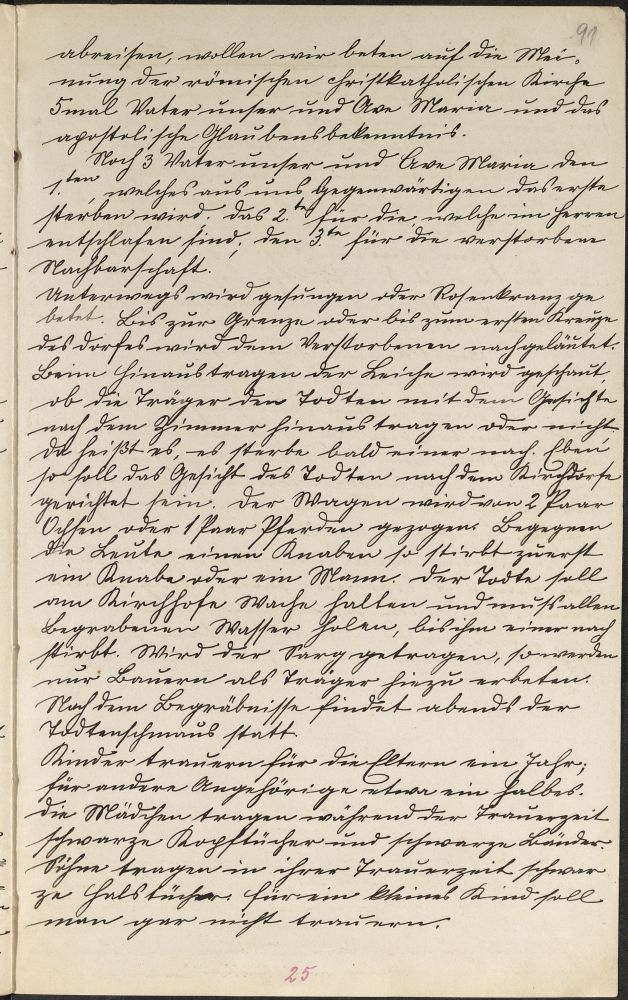 91
abreisen, wollen wir beten auf die Mei-
nung der römischen christkatholischen Kirche
5mal Vater unser und Ave Maria und das
apostolische Glaubensbekenntnis.
Noch 3 Vater unser und Ave Maria den
1.ten, welches aus uns Gegenwärtigen das erste
sterben wird. das 2.te für die welche im Herren
entschlafen sind, den 3.te für die verstorbene
Nachbarschaft.
Unterwegs wird gesungen oder Rosenkranz ge
betet. Bis zur Grenze oder bis zum ersten Kreuze
des Dorfes wird dem Verstorbenen nachgeläutet.
Beim Hinaustragen der Leiche wird geschaut,
ob die Träger den Todten mit dem Gesichte
nach dem Zimmer hinaustragen oder nicht
da heißt es, es sterbe bald einer nach. Eben
so soll das Gesicht des Todten nach dem Kirchdorfe
gerichtet sein. Der Wagen wird von 2 Paar
Ochsen oder 1 Paar Pferden gezogen. Begegnen
die Leute einen Knaben so stirbt zuerst
ein Knabe oder ein Mann. Der Todte soll
am Kirchhofe Wache halten und muß allen
Begrabenen Wasser holen, bis ihm einer nach
stirbt. Wird der Sarg getragen, so werden
nur Bauern als Träger hiezu erbeten.
Nach dem Begräbnisse findet abends der
Todtenschmaus statt.
Kinder trauern für die Eltern ein Jahr;
für andere Angehörige etwa ein halbes.
Die Mädchen tragen während der Trauerzeit
schwarze Kopftücher und schwarze Bänder.
Söhne tragen in ihrer Trauerzeit schwar
ze Halstücher. Für ein kleines Kind soll
man gar nicht trauern.
25